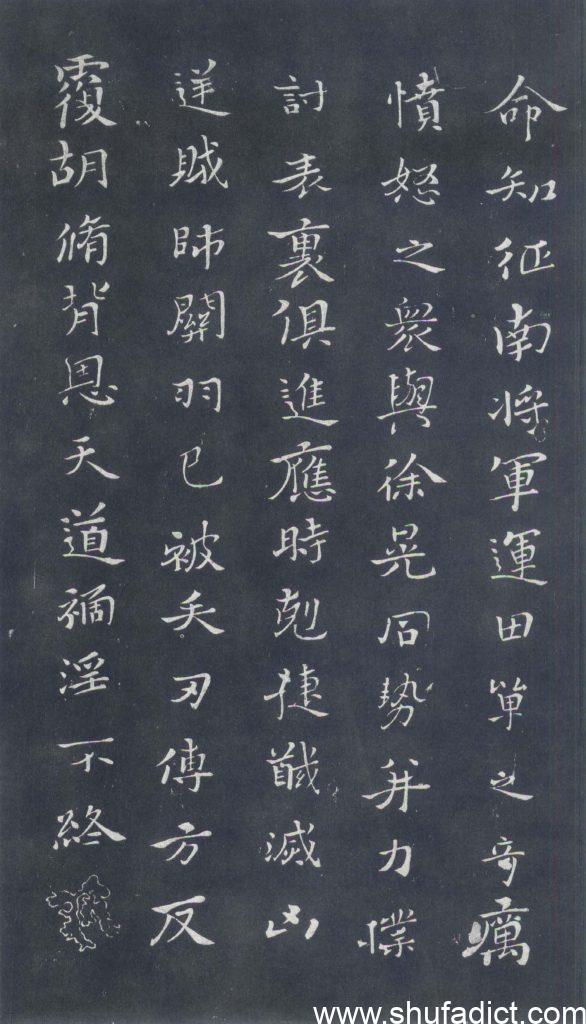 命知征南將軍運田單之奇厲
憤怒之衆與徐晃同勢并力撲
討表裏俱進應時剋捷馘滅凶
逆賊帥關羽已被矢刃傅方反
覆胡脩背恩天道禍淫不終
www.shufadict.com